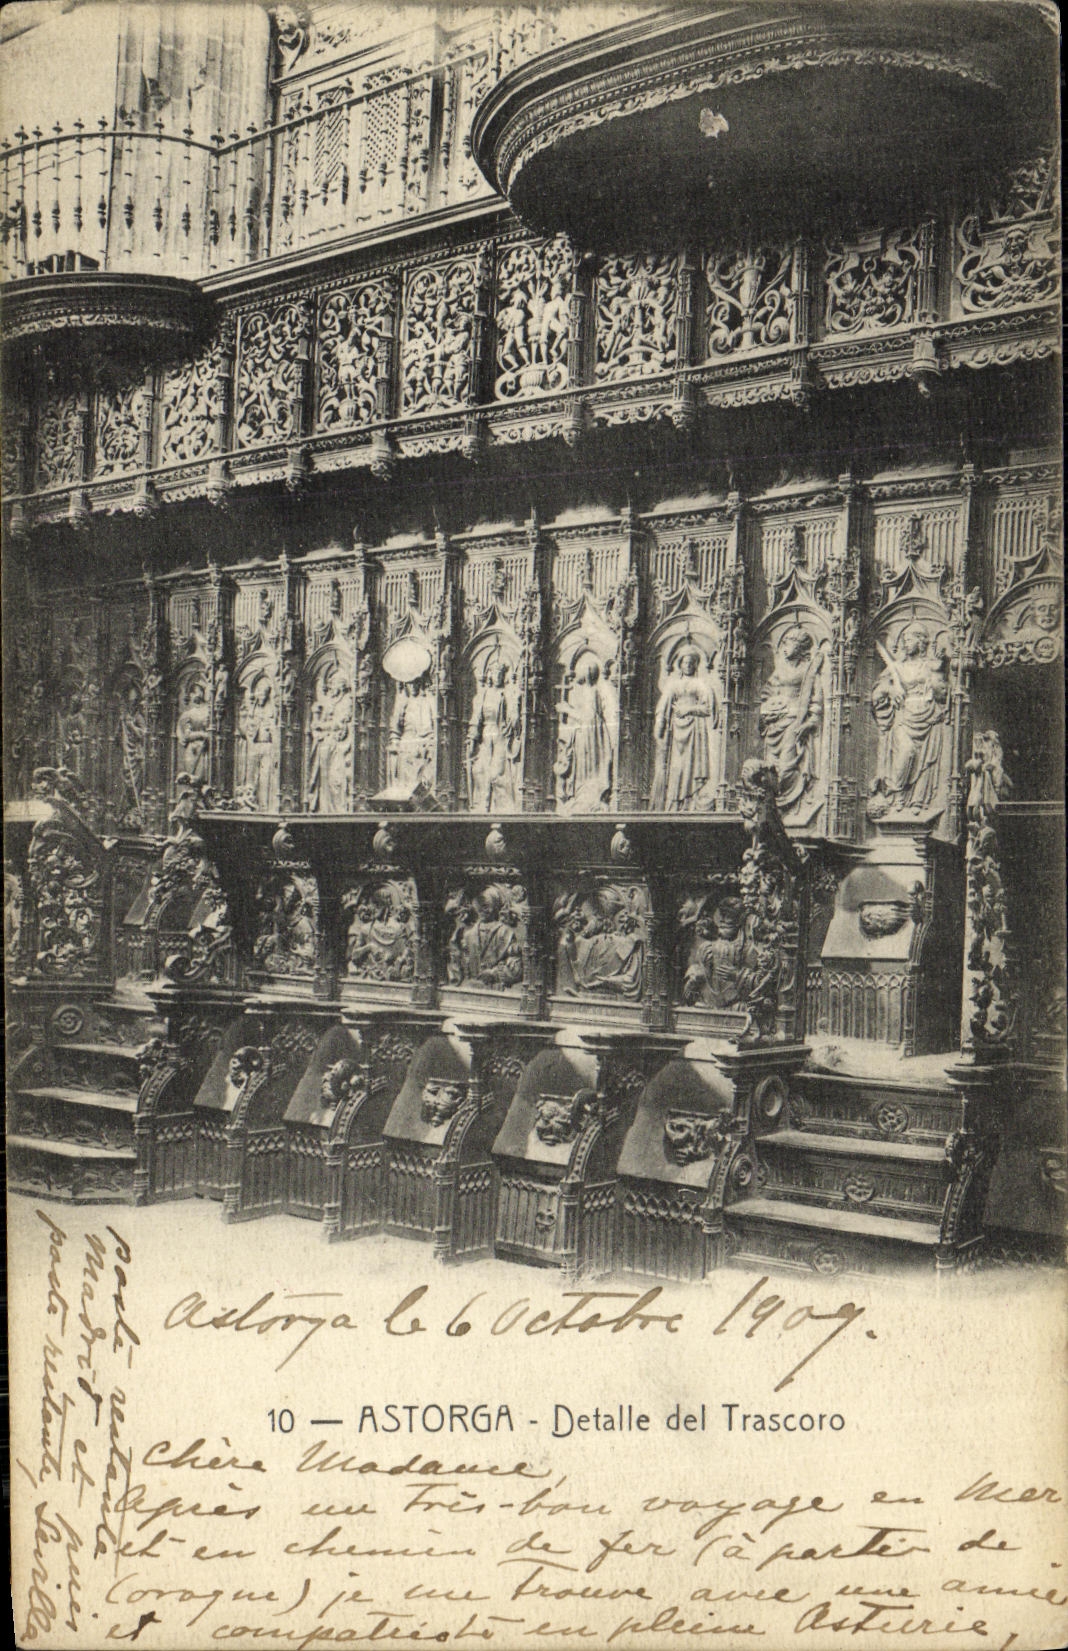 Astorga le 6 Octobre 1909.
10 — ASTORGA - Detalle del Trascoro
Chère Madame,
Après un très-bon voyage en mer
et en chemin de fer (à partir de
Corogne) je me trouve avec une amie
et compatriote en pleine Asturie,
poste restante
Madrid et puis
poste restante Sevilla